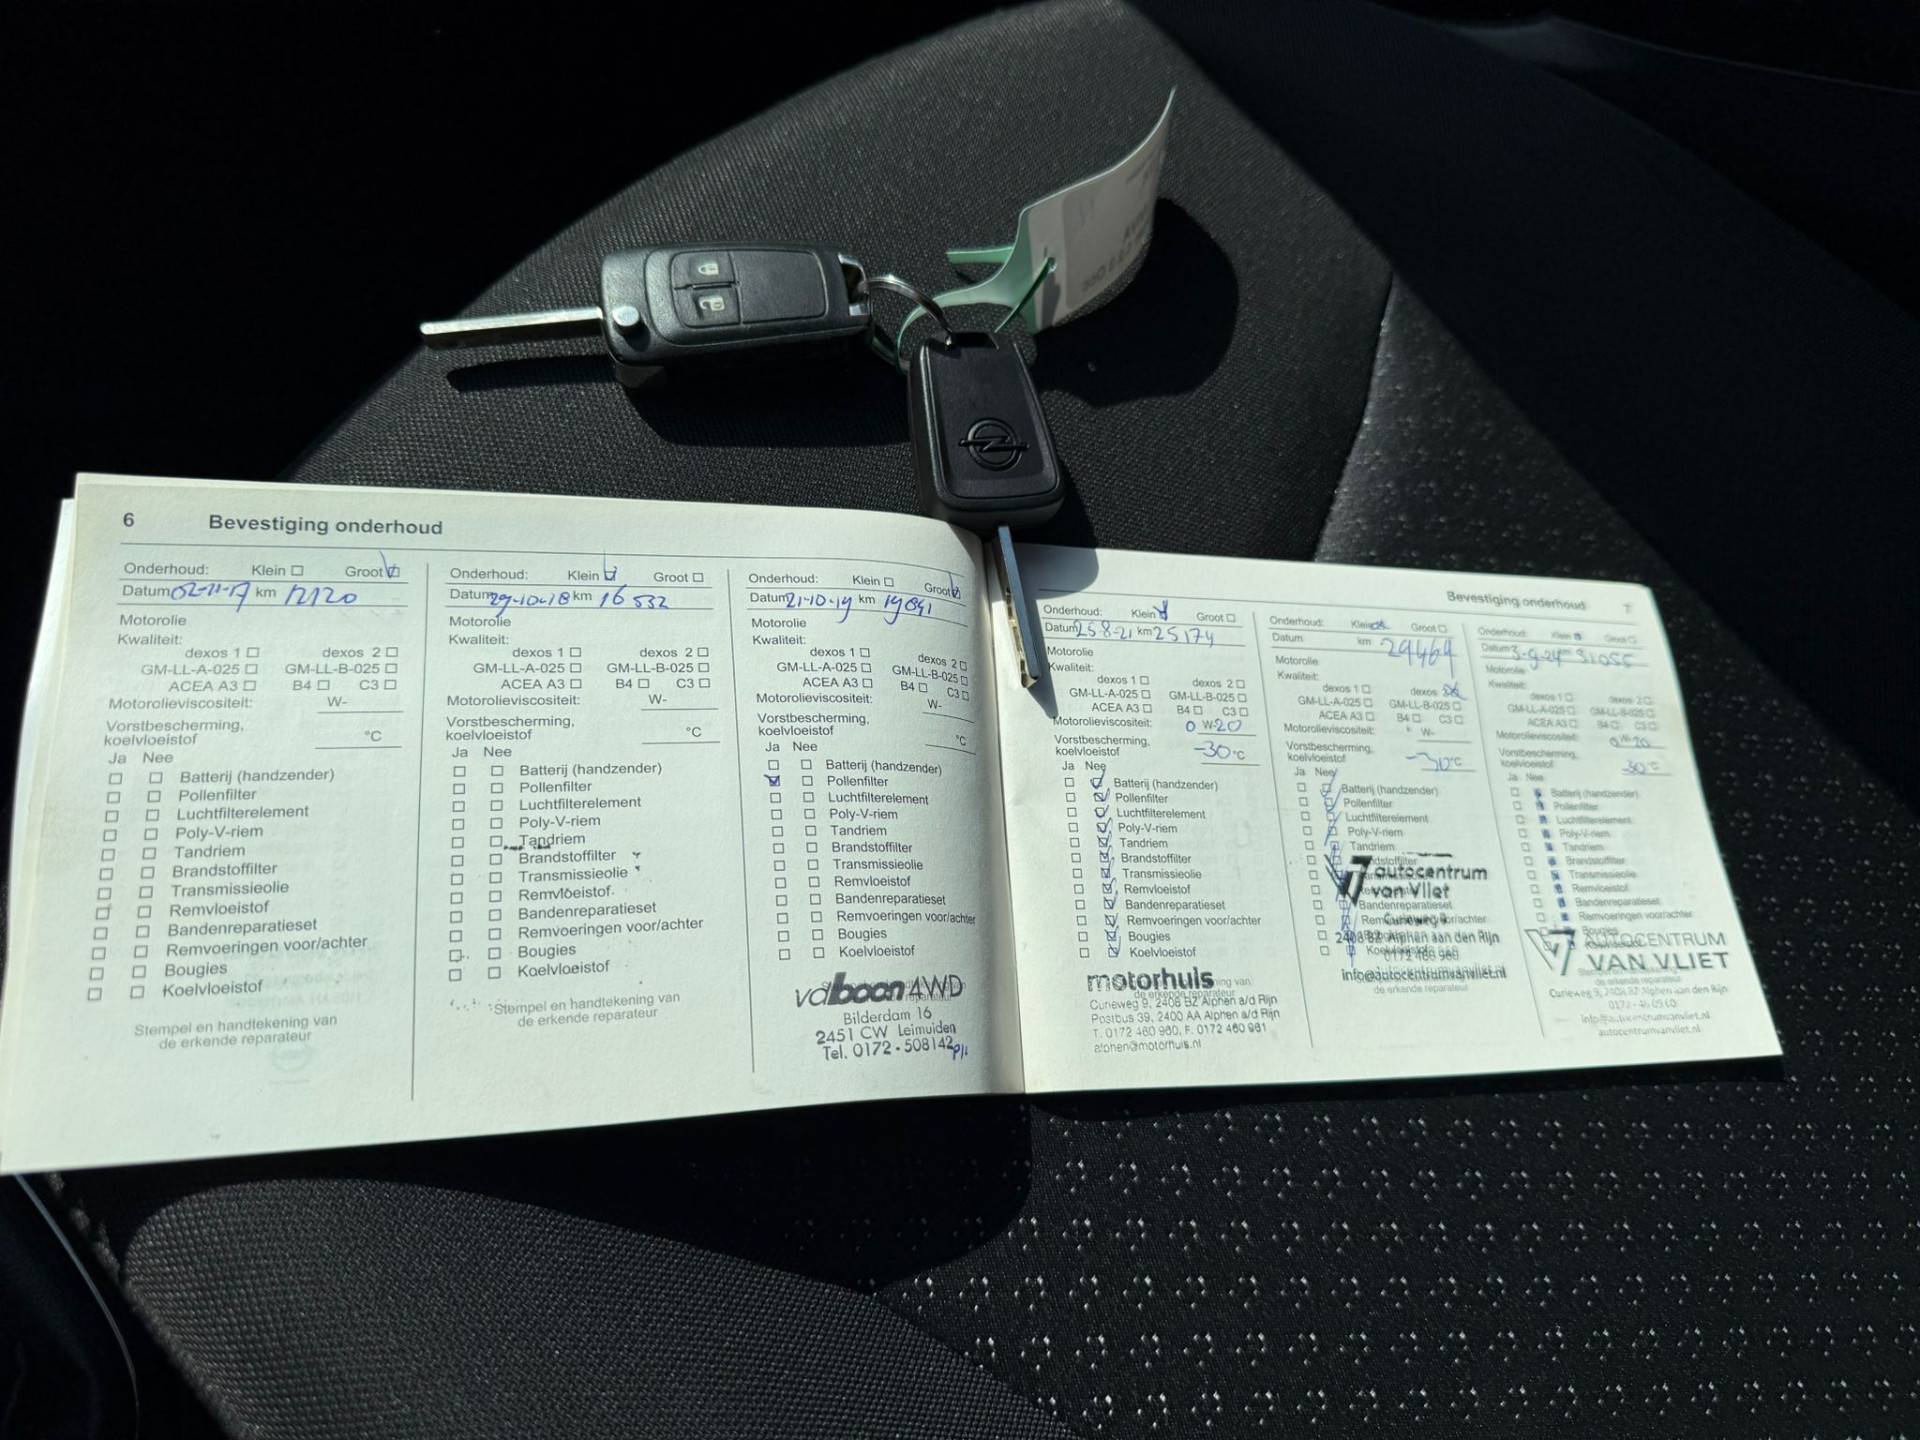 6 Bevestiging onderhoud
Onderhoud: Klein Groot
Datum 02-11-17 km 12120
Motorolie
Kwaliteit:
dexos 1 dexos 2
GM-LL-A-025 GM-LL-B-025
ACEA A3 B4 C3
Motorolieviscositeit: W-
Vorstbescherming,
koelvloeistof °C
Ja Nee
Batterij (handzender)
Pollenfilter
Luchtfilterelement
Poly-V-riem
Tandriem
Brandstoffilter
Transmissieolie
Remvloeistof
Bandenreparatieset
Remvoeringen voor/achter
Bougies
Koelvloeistof
Stempel en handtekening van
de erkende reparateur
Onderhoud: Klein Groot
Datum 29-10-18 km 16 532
Motorolie
Kwaliteit:
dexos 1 dexos 2
GM-LL-A-025 GM-LL-B-025
ACEA A3 B4 C3
Motorolieviscositeit: W-
Vorstbescherming,
koelvloeistof °C
Ja Nee
Batterij (handzender)
Pollenfilter
Luchtfilterelement
Poly-V-riem
Tandriem
Brandstoffilter
Transmissieolie
Remvloeistof
Bandenreparatieset
Remvoeringen voor/achter
Bougies
Koelvloeistof
Stempel en handtekening van
de erkende reparateur
Onderhoud: Klein Groot
Datum 21-10-19 km 19891
Motorolie
Kwaliteit:
dexos 1 dexos 2
GM-LL-A-025 GM-LL-B-025
ACEA A3 B4 C3
Motorolieviscositeit: W-
Vorstbescherming,
koelvloeistof °C
Ja Nee
Batterij (handzender)
Pollenfilter
Luchtfilterelement
Poly-V-riem
Tandriem
Brandstoffilter
Transmissieolie
Remvloeistof
Bandenreparatieset
Remvoeringen voor/achter
Bougies
Koelvloeistof
valboon 4WD
Bilderdam 16
2451 CW Leimuiden
Tel. 0172 - 508142
Bevestiging onderhoud 7
Onderhoud: Klein Groot
Datum 25-8-21 km 25174
Motorolie
Kwaliteit:
dexos 1 dexos 2
GM-LL-A-025 GM-LL-B-025
ACEA A3 B4 C3
Motorolieviscositeit: 0 W-20
Vorstbescherming,
koelvloeistof -30 °C
Ja Nee
Batterij (handzender)
Pollenfilter
Luchtfilterelement
Poly-V-riem
Tandriem
Brandstoffilter
Transmissieolie
Remvloeistof
Bandenreparatieset
Remvoeringen voor/achter
Bougies
Koelvloeistof
motorhuis
de erkende reparateur
Curieweg 9, 2408 BZ Alphen a/d Rijn
Postbus 39, 2400 AA Alphen a/d Rijn
T. 0172 460 960, F. 0172 460 961
alphen@motorhuis.nl
Onderhoud: Klein Groot
Datum km 29469
Motorolie
Kwaliteit:
dexos 1 dexos
GM-LL-A-025 GM-LL-B-025
ACEA A3 B4 C3
Motorolieviscositeit: W-
Vorstbescherming,
koelvloeistof -30 °C
Ja Nee
Batterij (handzender)
Pollenfilter
Luchtfilterelement
Poly-V-riem
Tandriem
autocentrum
van Vliet
Bandenreparatieset
Curieweg 9
2408 BZ Alphen aan den Rijn
0172 460 960
info@autocentrumvanvliet.nl
de erkende reparateur
Onderhoud: Klein Groot
Datum 3-9-24 km 31055
Motorolie
Kwaliteit:
dexos 1 dexos 2
GM-LL-A-025 GM-LL-B-025
ACEA A3 B4 C3
Motorolieviscositeit: 0 W-20
Vorstbescherming,
koelvloeistof -30 °C
Ja Nee
Batterij (handzender)
Pollenfilter
Luchtfilterelement
Poly-V-riem
Tandriem
Brandstoffilter
Transmissieolie
Remvloeistof
Bandenreparatieset
Remvoeringen voor/achter
Bougies
AUTOCENTRUM
VAN VLIET
de erkende reparateur
Curieweg 9, 2408 BZ Alphen aan den Rijn
info@autocentrumvanvliet.nl
autocentrumvanvliet.nl